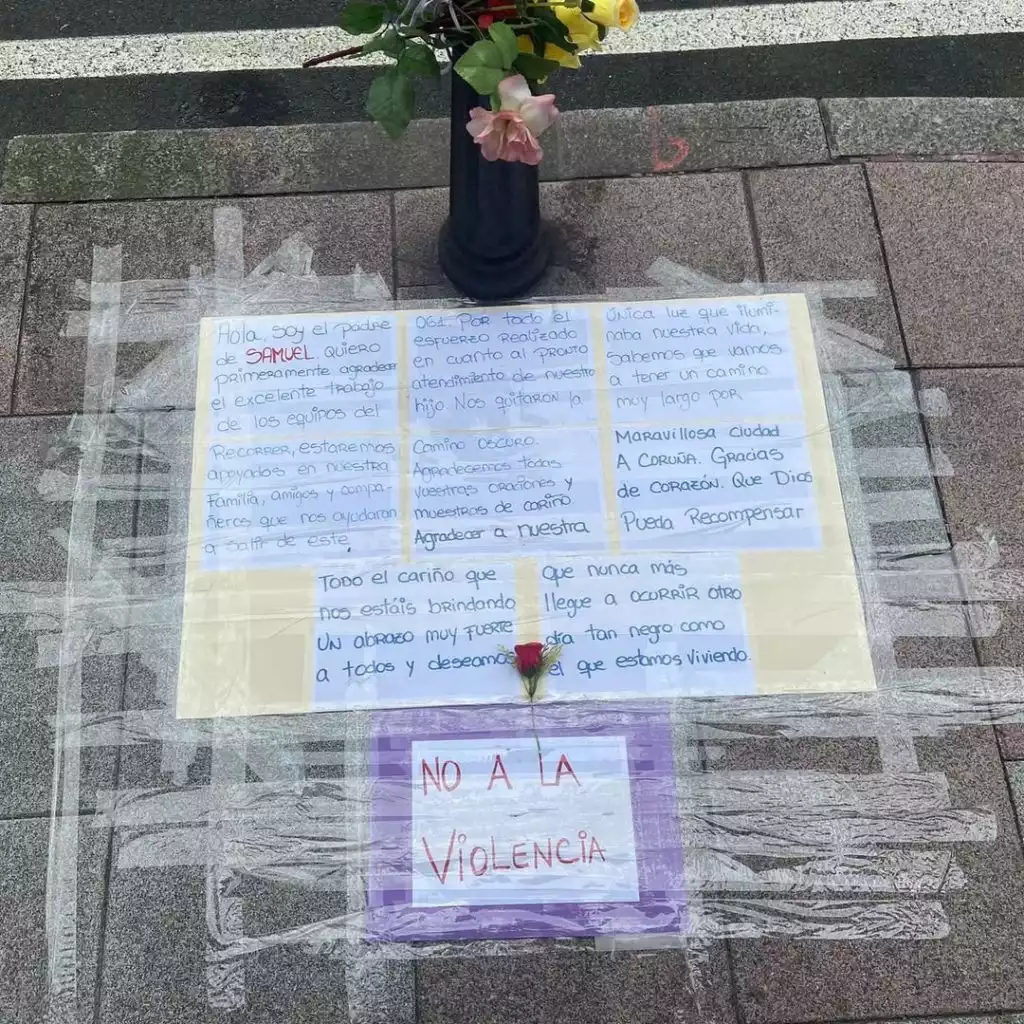 Hola, soy el padre
de SAMUEL. QUIERO
primeramente agradecer
el excelente trabajo
de los equipos del
061. Por todo el
esfuerzo realizado
en cuanto al pronto
atendimento de nuestro
hijo. Nos quitaron la
única luz que ilumi-
naba nuestra vida,
Sabemos que vamos
a tener un camino
muy largo por
Recorrer, estaremos
apoyados en nuestra
Familia, amigos y compa-
ñeros que nos ayudaran
a salir de este
Camino oscuro.
Agradecemos todas
vuestras oraciones y
muestras de cariño.
Agradecer a nuestra
Maravillosa ciudad
A CORUÑA. Gracias
de CORAZÓN. Que Dios
Pueda Recompensar
TODO el cariño que
nos estáis brindando
UN abrazo muy FUERTE
a todos y deseamos
que nunca más
llegue a OCURRIR OTRO
día tan negro como
el que estamos viviendo.
NO A LA
VIOLENCIA
b